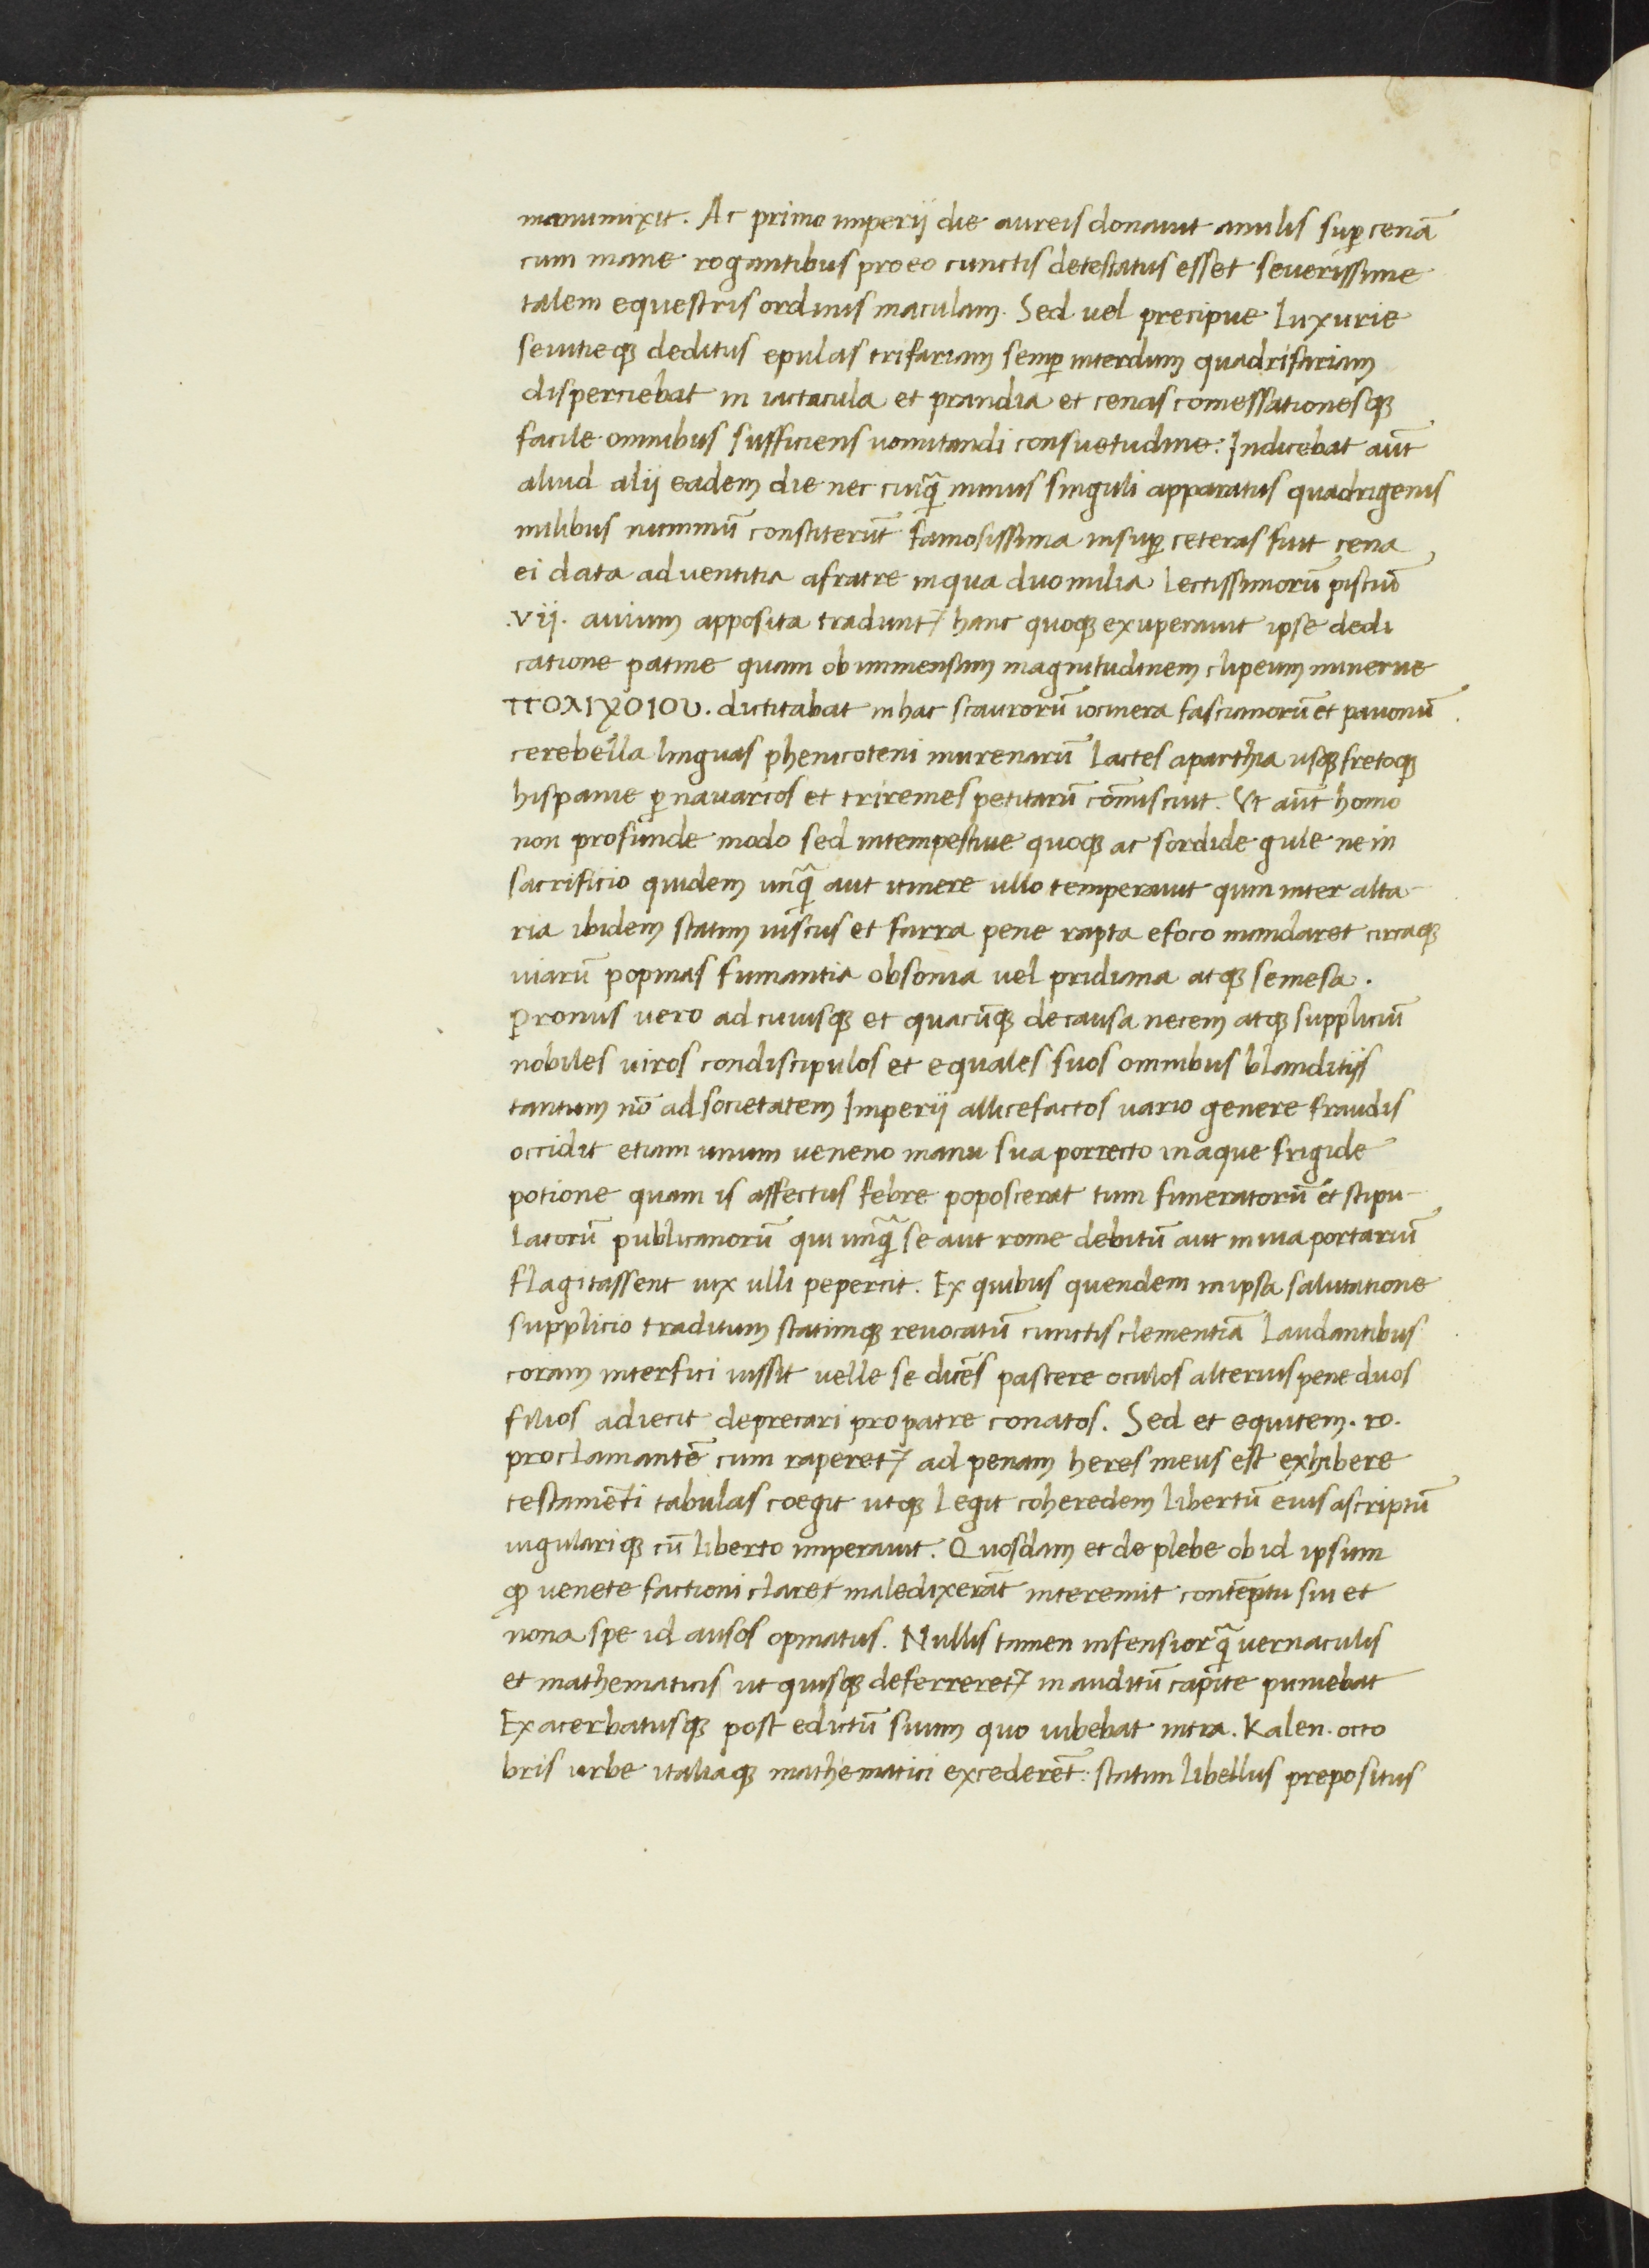 manumixit. Ac primo imperij die aureis donauit anulis sup̱ cenā
cum mane rogantibus pro eo cunctis detestatus esset seuerissime
talem equestris ordinis maculam. Sed uel precipue luxurie
seuitieqꝫ deditus epulas trifariam semp̱ interdum quadrifariam
disperciebat in iactacula et prandia et cenas comessationesqꝫ
facile omnibus sufficiens uomitandi consuetudine: Indicebat aūt
aliud alij eadem die nec cuiq̃ minus singuli apparatus quadrigenis
milibus nummū constiterūt famosissima insup̱ ceteras fuit cena
ei data aduentitia afratre in qua duo milia lectissimorū pisciū
.vij. auium apposita tradunt᷑ hanc quoqꝫ exuperauit ipse dedi
catione patine quam ob immensam magnitudinem clipeum minerue
ΠΟΛΙΧΟΙΟΥ. dictitabat in hac scaurorū iocinera fascianorū et pauonū
cerebella linguas phenicoteni murenarū lactes aparthia usqꝫ fretoqꝫ
hispanie p̱ nauarcos et triremes petitarū cōmiscuit. Vt aūt homo
non profunde modo sed intempestiue quoqꝫ ac sordide gule ne in
sacrificio quidem unq̃ aut itinere ullo temperauit quin inter alta-
ria ibidem statim uiscus et farra pene rapta efoco mandaret circaqꝫ
uiarū popinas fumantia obsonia uel pridiana atqꝫ semesa.
Pronus vero ad cuiusqꝫ et quacūqꝫ de causa necem atqꝫ suppliciū
nobiles uiros condiscipulos et equales suos omnibus blanditijs
tantum nō ad societatem Imperij allicefactos uario genere fraudis
occidit etiam unum ueneno manu sua porrecto in aque frigide
potione quam is affectus febre poposcerat tum funeratorū et stipu-
latorū publicanorū qui unq̃ se aut rome debitū aut in uia portariū
flagitassent uix ulli pepercit. Ex quibus quendem in ipsa salutatione
supplicio traditum statimqꝫ reuocatū cunctis clementiā laudantibus
coram interfici iussit uelle se dicēs pascere oculos alterius pene duos
filios adiecit deprecari pro patre conatos. Sed et equitem. ro.
proclamantē cum raperet᷑ ad penam heres meus est exhibere
testamēti tabulas coegit utqꝫ legit coheredem libertū eius ascriptū
iugulariqꝫ cū liberto imperauit. Quosdam et de plebe ob id ipsum
ꝙ venete factioni claret maledixerāt interemit contēptu sui et
nona spe id ausos opinatus. Nullis tamen infensior q̃ uernaculis
et mathematicis ut quisqꝫ deferreret᷑ in auditū capite puniebat
Exacerbatusqꝫ post edictū suum quo iubebat intra. Kalen. octo
bris urbe italiaqꝫ mathematici excederēt: statim libellus prepositus